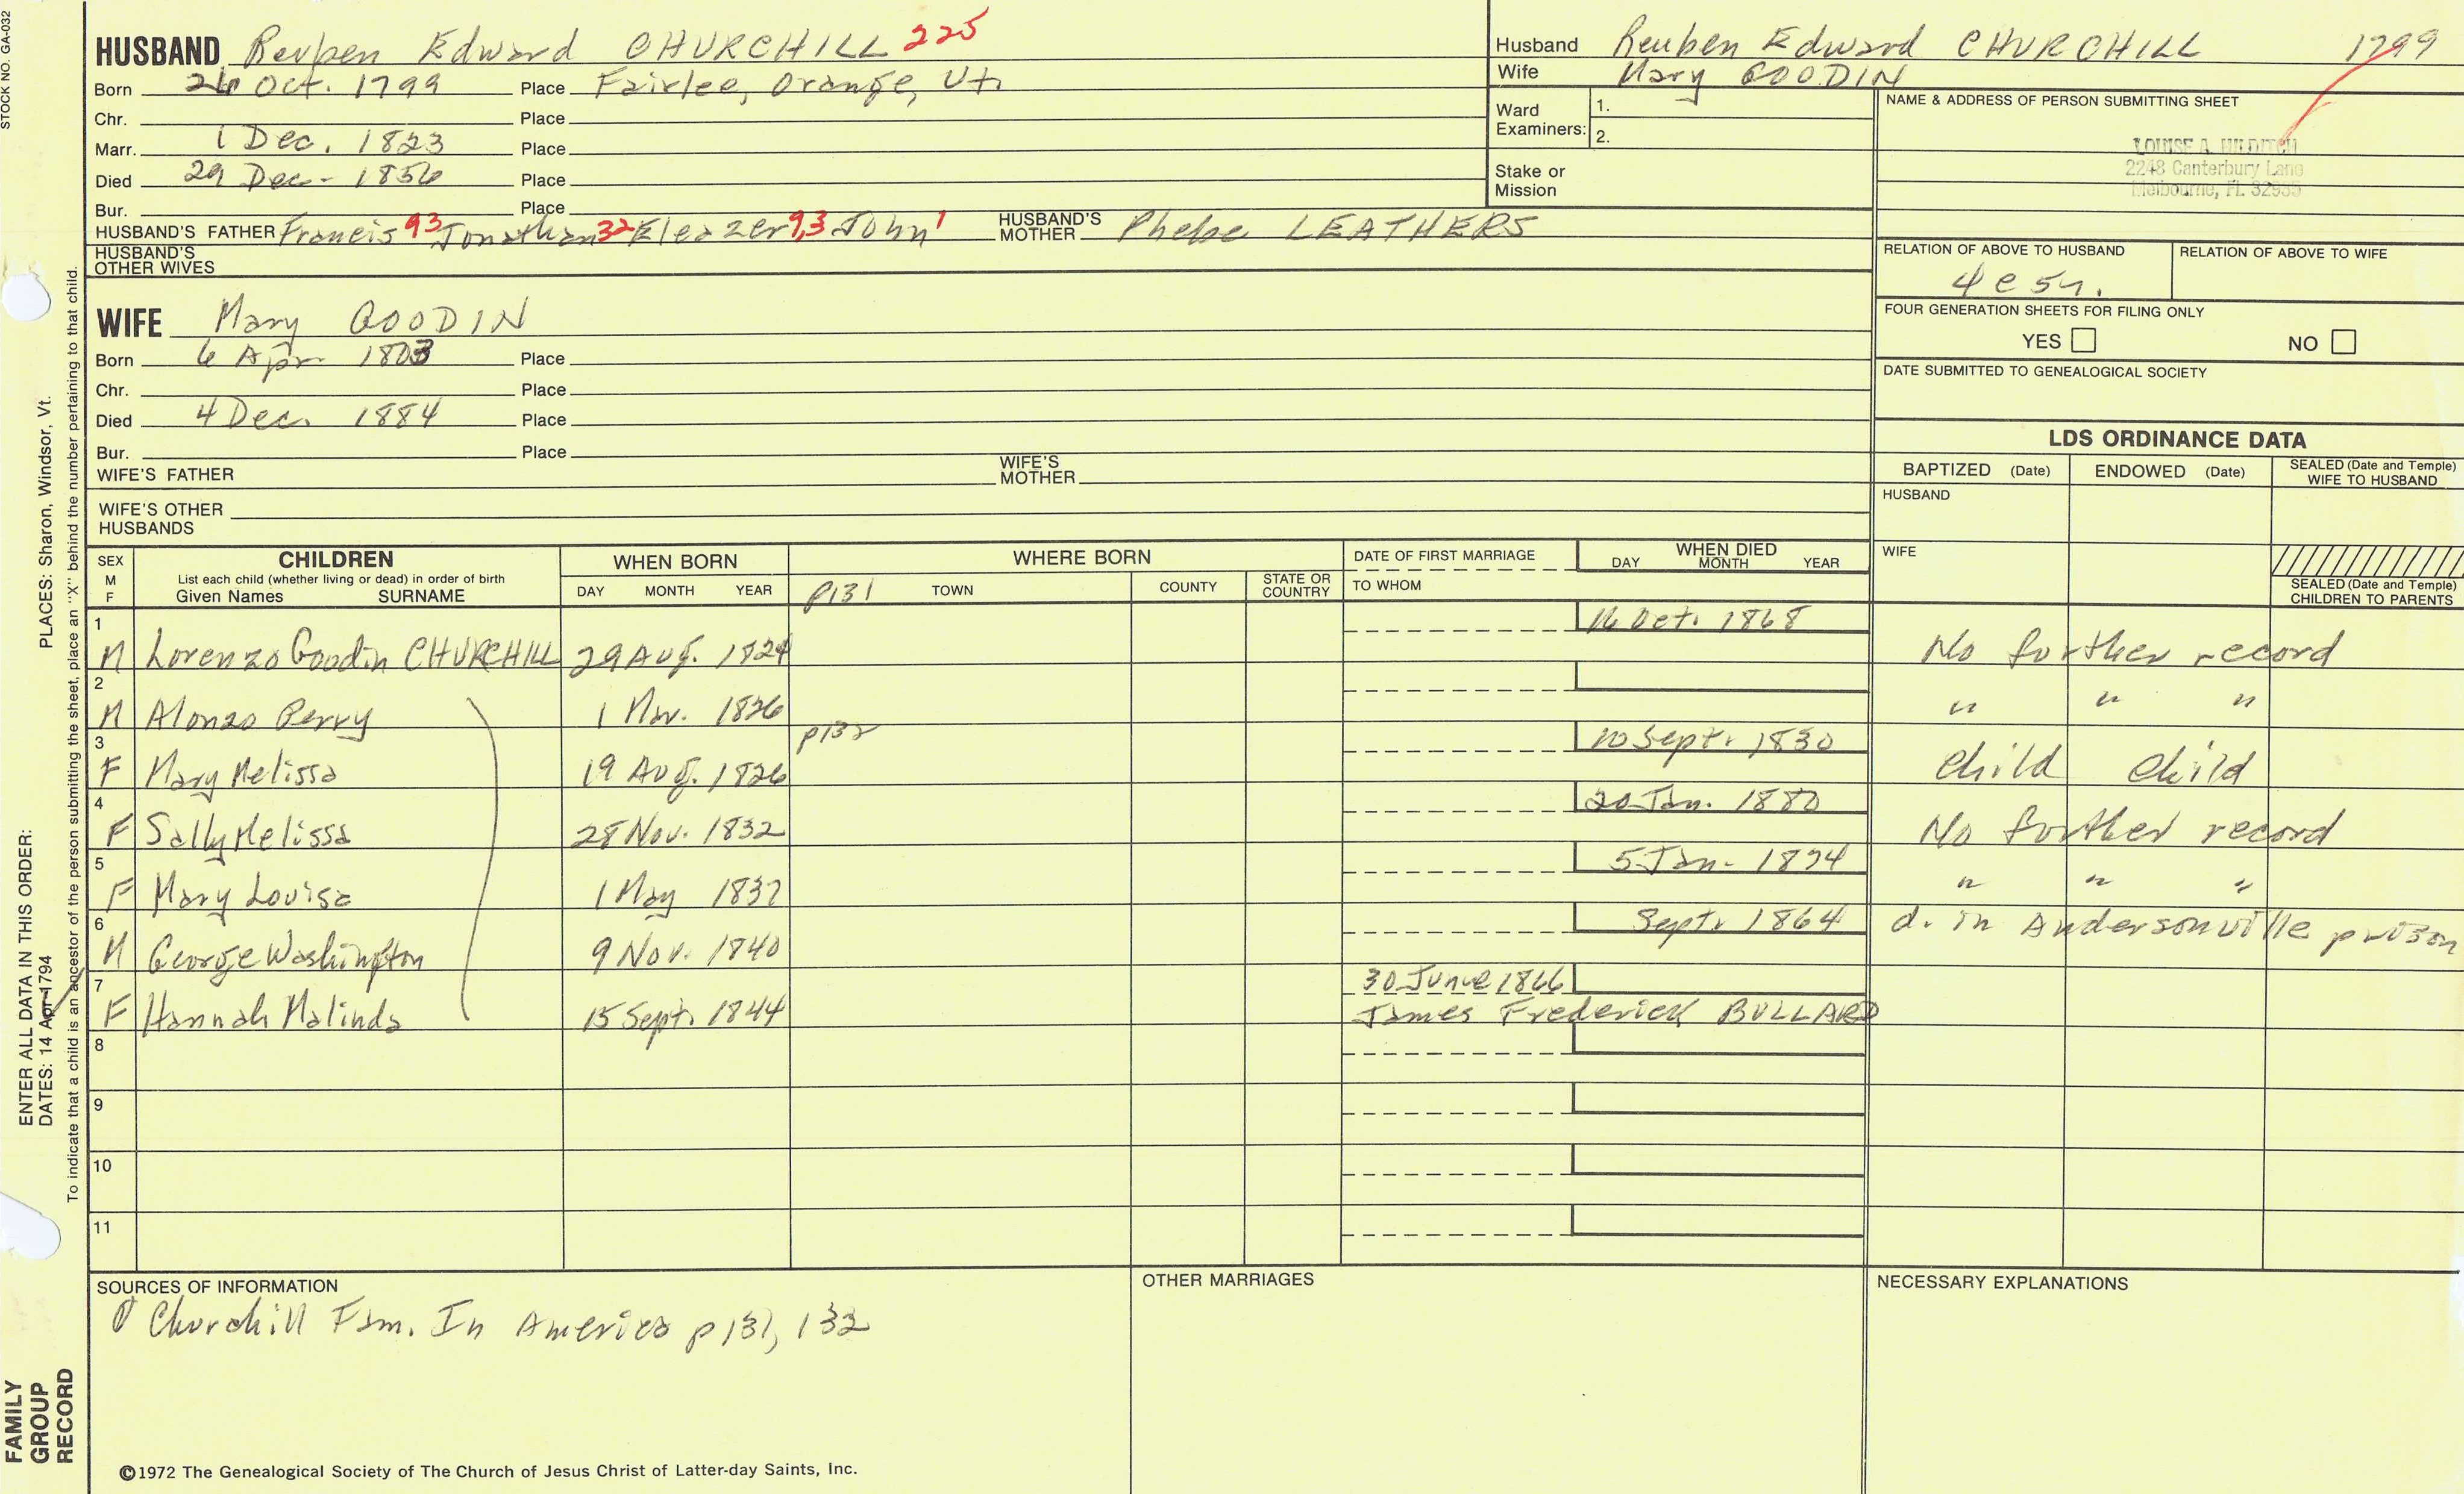 STOCK NO. GA-032
HUSBAND Reuben Edward CHURCHILL 225
Born 26 Oct. 1799 Place Fairlee, Orange, Vt.
Chr. Place
Marr. 1 Dec. 1823 Place
Died 29 Dec. 1856 Place
Bur. Place
HUSBAND'S FATHER Francis 93 Jonathan 32 Eleazer 9,3 John 1 HUSBAND'S MOTHER Phebe LEATHERS
HUSBAND'S OTHER WIVES
Husband Reuben Edward CHURCHILL 1799
Wife Mary GOODIN
Ward Examiners: 1.
2.
Stake or Mission
NAME & ADDRESS OF PERSON SUBMITTING SHEET
LOUISE A. HILDITCH
2248 Canterbury Lane
Melbourne, Fl. 32935
RELATION OF ABOVE TO HUSBAND
4 c 5 r.
RELATION OF ABOVE TO WIFE
FOUR GENERATION SHEETS FOR FILING ONLY
YES NO
DATE SUBMITTED TO GENEALOGICAL SOCIETY
WIFE Mary GOODIN
Born 6 Apr. 1803 Place
Chr. Place
Died 4 Dec. 1884 Place
Bur. Place
WIFE'S FATHER WIFE'S MOTHER
WIFE'S OTHER HUSBANDS
LDS ORDINANCE DATA
BAPTIZED (Date) ENDOWED (Date) SEALED (Date and Temple) WIFE TO HUSBAND
HUSBAND
WIFE
SEALED (Date and Temple) CHILDREN TO PARENTS
SEX M F
CHILDREN
List each child (whether living or dead) in order of birth
Given Names SURNAME
WHEN BORN
DAY MONTH YEAR
WHERE BORN
p131 TOWN COUNTY STATE OR COUNTRY
DATE OF FIRST MARRIAGE
TO WHOM
WHEN DIED
DAY MONTH YEAR
1 M Lorenzo Goodin CHURCHILL 29 Aug. 1824 16 Oct. 1868 No further record
2 M Alonzo Perry 1 Mar. 1826 " " "
3 F Mary Melissa 19 Aug. 1826 p132 10 Sept. 1830 child child
4 F Sally Melissa 28 Nov. 1832 20 Jan. 1880 No further record
5 F Mary Louisa 1 May 1837 5 Jan. 1894 " " "
6 M George Washington 9 Nov. 1840 Sept. 1864 d. in Andersonville prison
7 F Hannah Malinda 15 Sept. 1844 30 June 1866
James Frederick BULLARD
8
9
10
11
SOURCES OF INFORMATION
Churchill Fam. In America p 131, 132
OTHER MARRIAGES
NECESSARY EXPLANATIONS
©1972 The Genealogical Society of The Church of Jesus Christ of Latter-day Saints, Inc.
ENTER ALL DATA IN THIS ORDER:
DATES: 14 Apr 1794 PLACES: Sharon, Windsor, Vt.
To indicate that a child is an ancestor of the person submitting the sheet, place an "X" behind the number pertaining to that child.
FAMILY
GROUP
RECORD